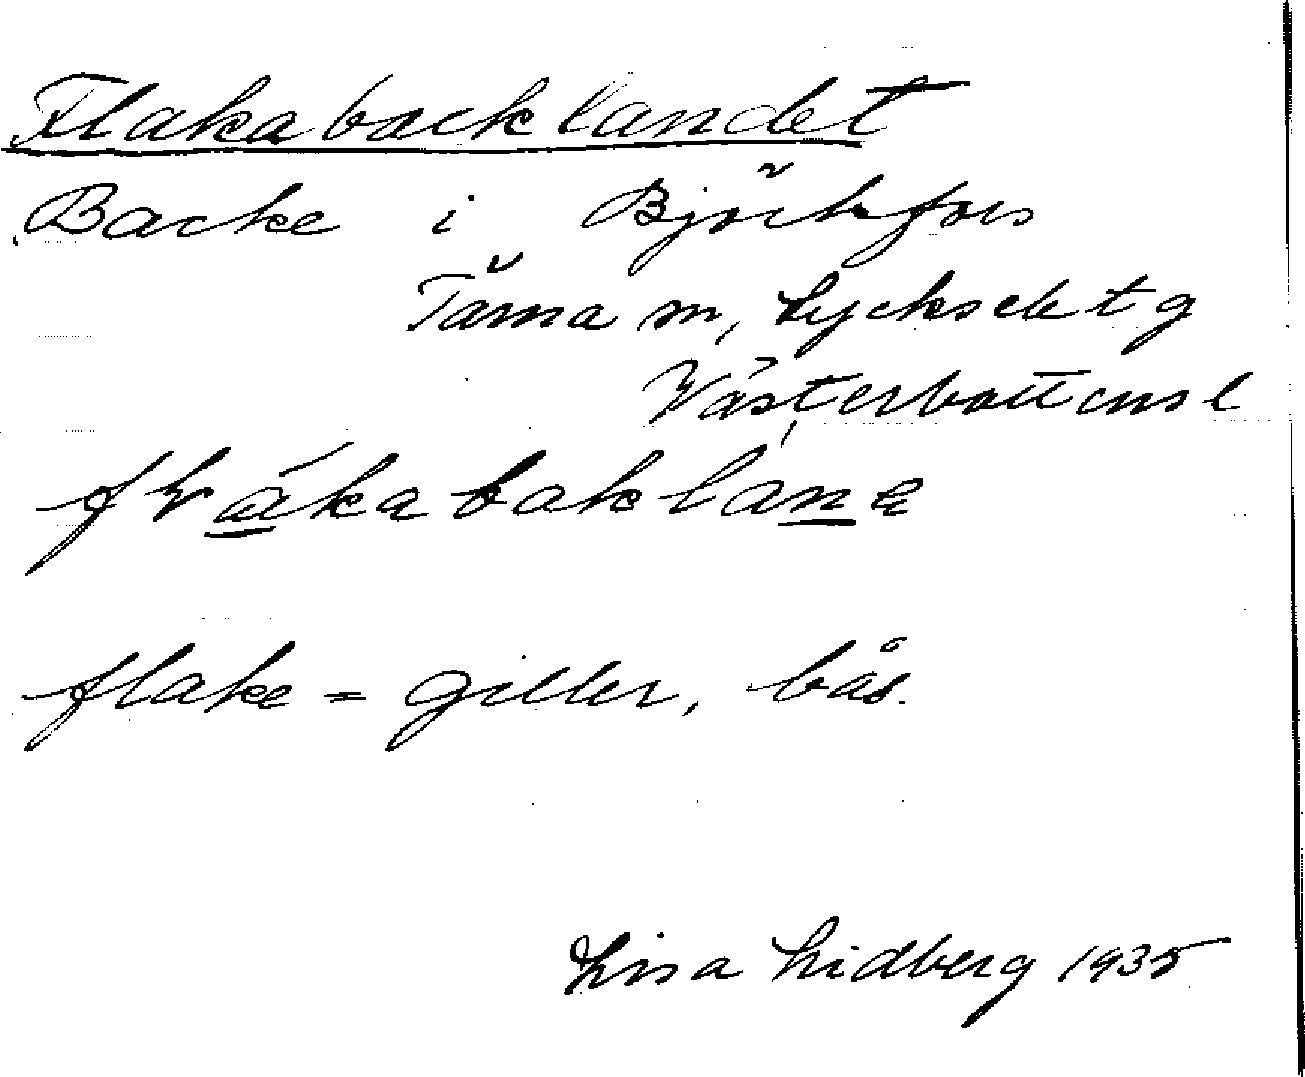 Flakabacklandet
Backe i Björkfors
Tärna sn, Lycksele tg
Västerbottens l
flake = giller, bås.
Lisa Lidberg 1935